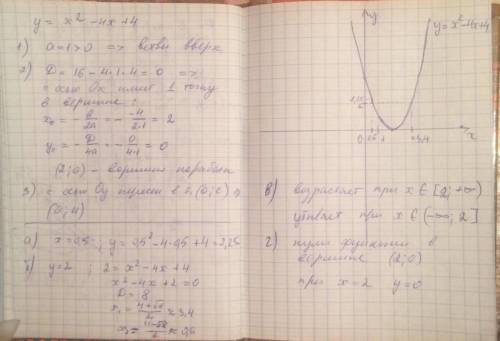 y = x² - 4x + 4
1) a = 1 > 0 => ветви вверх
2) D = 16 - 4·1·4 = 0 =>
с осью Ox имеет 1 точку
в вершине:
x₀ = -b/2a = - -4/2·1 = 2
y₀ = -D/4a = -0/4·1 = 0
(2;0) - вершина параболы
3) с осью Oy
(0;4)
а) x = 0,5; y = 0,5² - 4·0,5 + 4 = 2,25
б) y = 2; 2 = x² - 4x + 4
x² - 4x + 2 = 0
D = 8
x₁ = 4+√8/2 ≈ 3,4
x₂ = 4-√8/2 ≈ 0,6
y
y = x² - 4x + 4
0
1
3,4
x
в) возрастает при x ∈ [2; +∞)
убывает при x ∈ (-∞; 2]
г) нули функции в
вершине (2;0)
при x = 2 y = 0